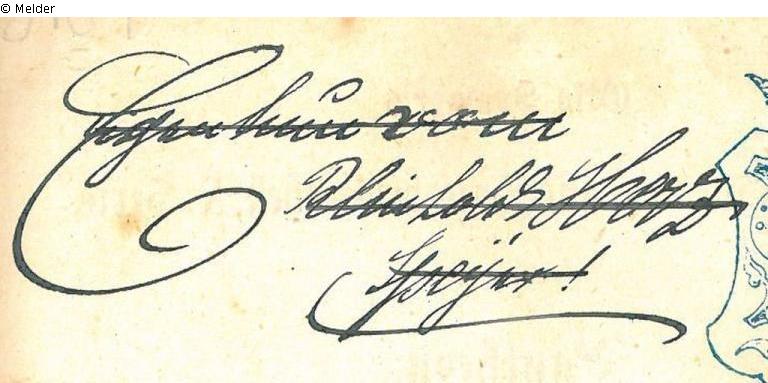 © Melder
Eigenthum vom
Reinhold Herz
Speyer!